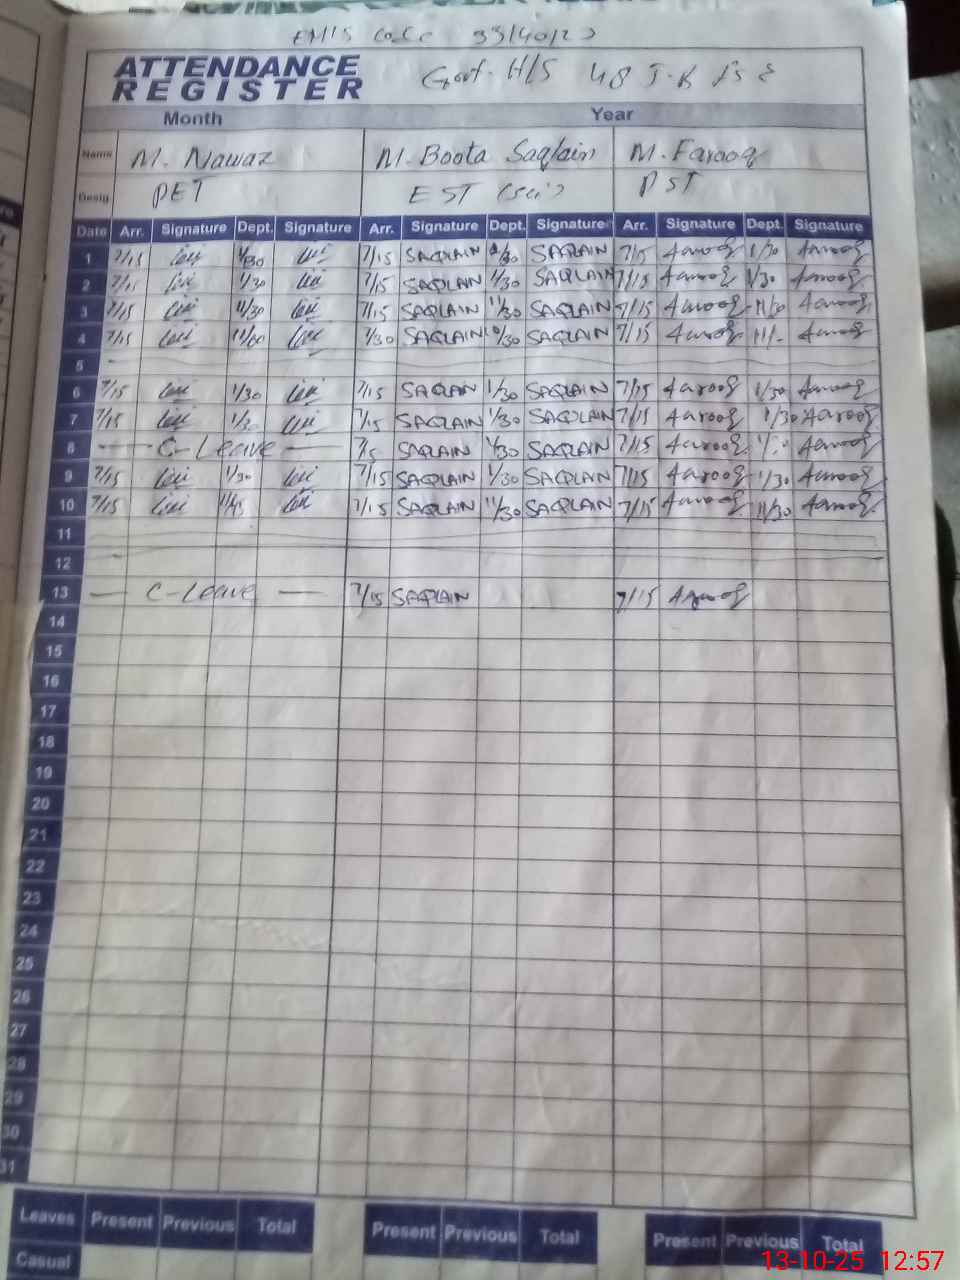 EMIS Code
ATTENDANCE
REGISTER
Govt. H/S 48 J-B
Month Year
Name M. Nawaz M. Boota Saqlain M. Farooq
Desig PET EST (Sci) PST
Date Arr. Signature Dept. Signature Arr. Signature Dept. Signature Arr. Signature Dept. Signature
1 7/15 1/30 7/15 SAQLAIN 1/30 SAQLAIN 7/15 Farooq 1/30 Farooq
2 7/15 1/30 7/15 SAQLAIN 1/30 SAQLAIN 7/15 Farooq 1/30 Farooq
3 7/15 11/30 7/15 SAQLAIN 11/30 SAQLAIN 7/15 Farooq 11/30 Farooq
4 7/15 11/00 7/30 SAQLAIN 10/30 SAQLAIN 7/15 Farooq 11/- Farooq
5
6 7/15 1/30 7/15 SAQLAIN 1/30 SAQLAIN 7/15 Farooq 1/30 Farooq
7 7/15 1/30 7/15 SAQLAIN 1/30 SAQLAIN 7/15 Farooq 1/30 Farooq
8 — C-Leave — 7/15 SAQLAIN 1/30 SAQLAIN 7/15 Farooq Farooq
9 7/15 1/30 7/15 SAQLAIN 1/30 SAQLAIN 7/15 Farooq 1/30 Farooq
10 7/15 11/45 7/15 SAQLAIN 11/30 SAQLAIN 7/15 Farooq 11/30 Farooq
11
12
13 — C-Leave — 7/15 SAQLAIN 7/15 Farooq
14
15
16
17
18
19
20
21
22
23
24
25
26
27
28
29
30
31
Leaves Present Previous Total Present Previous Total Present Previous Total
Casual
13-10-25 12:57